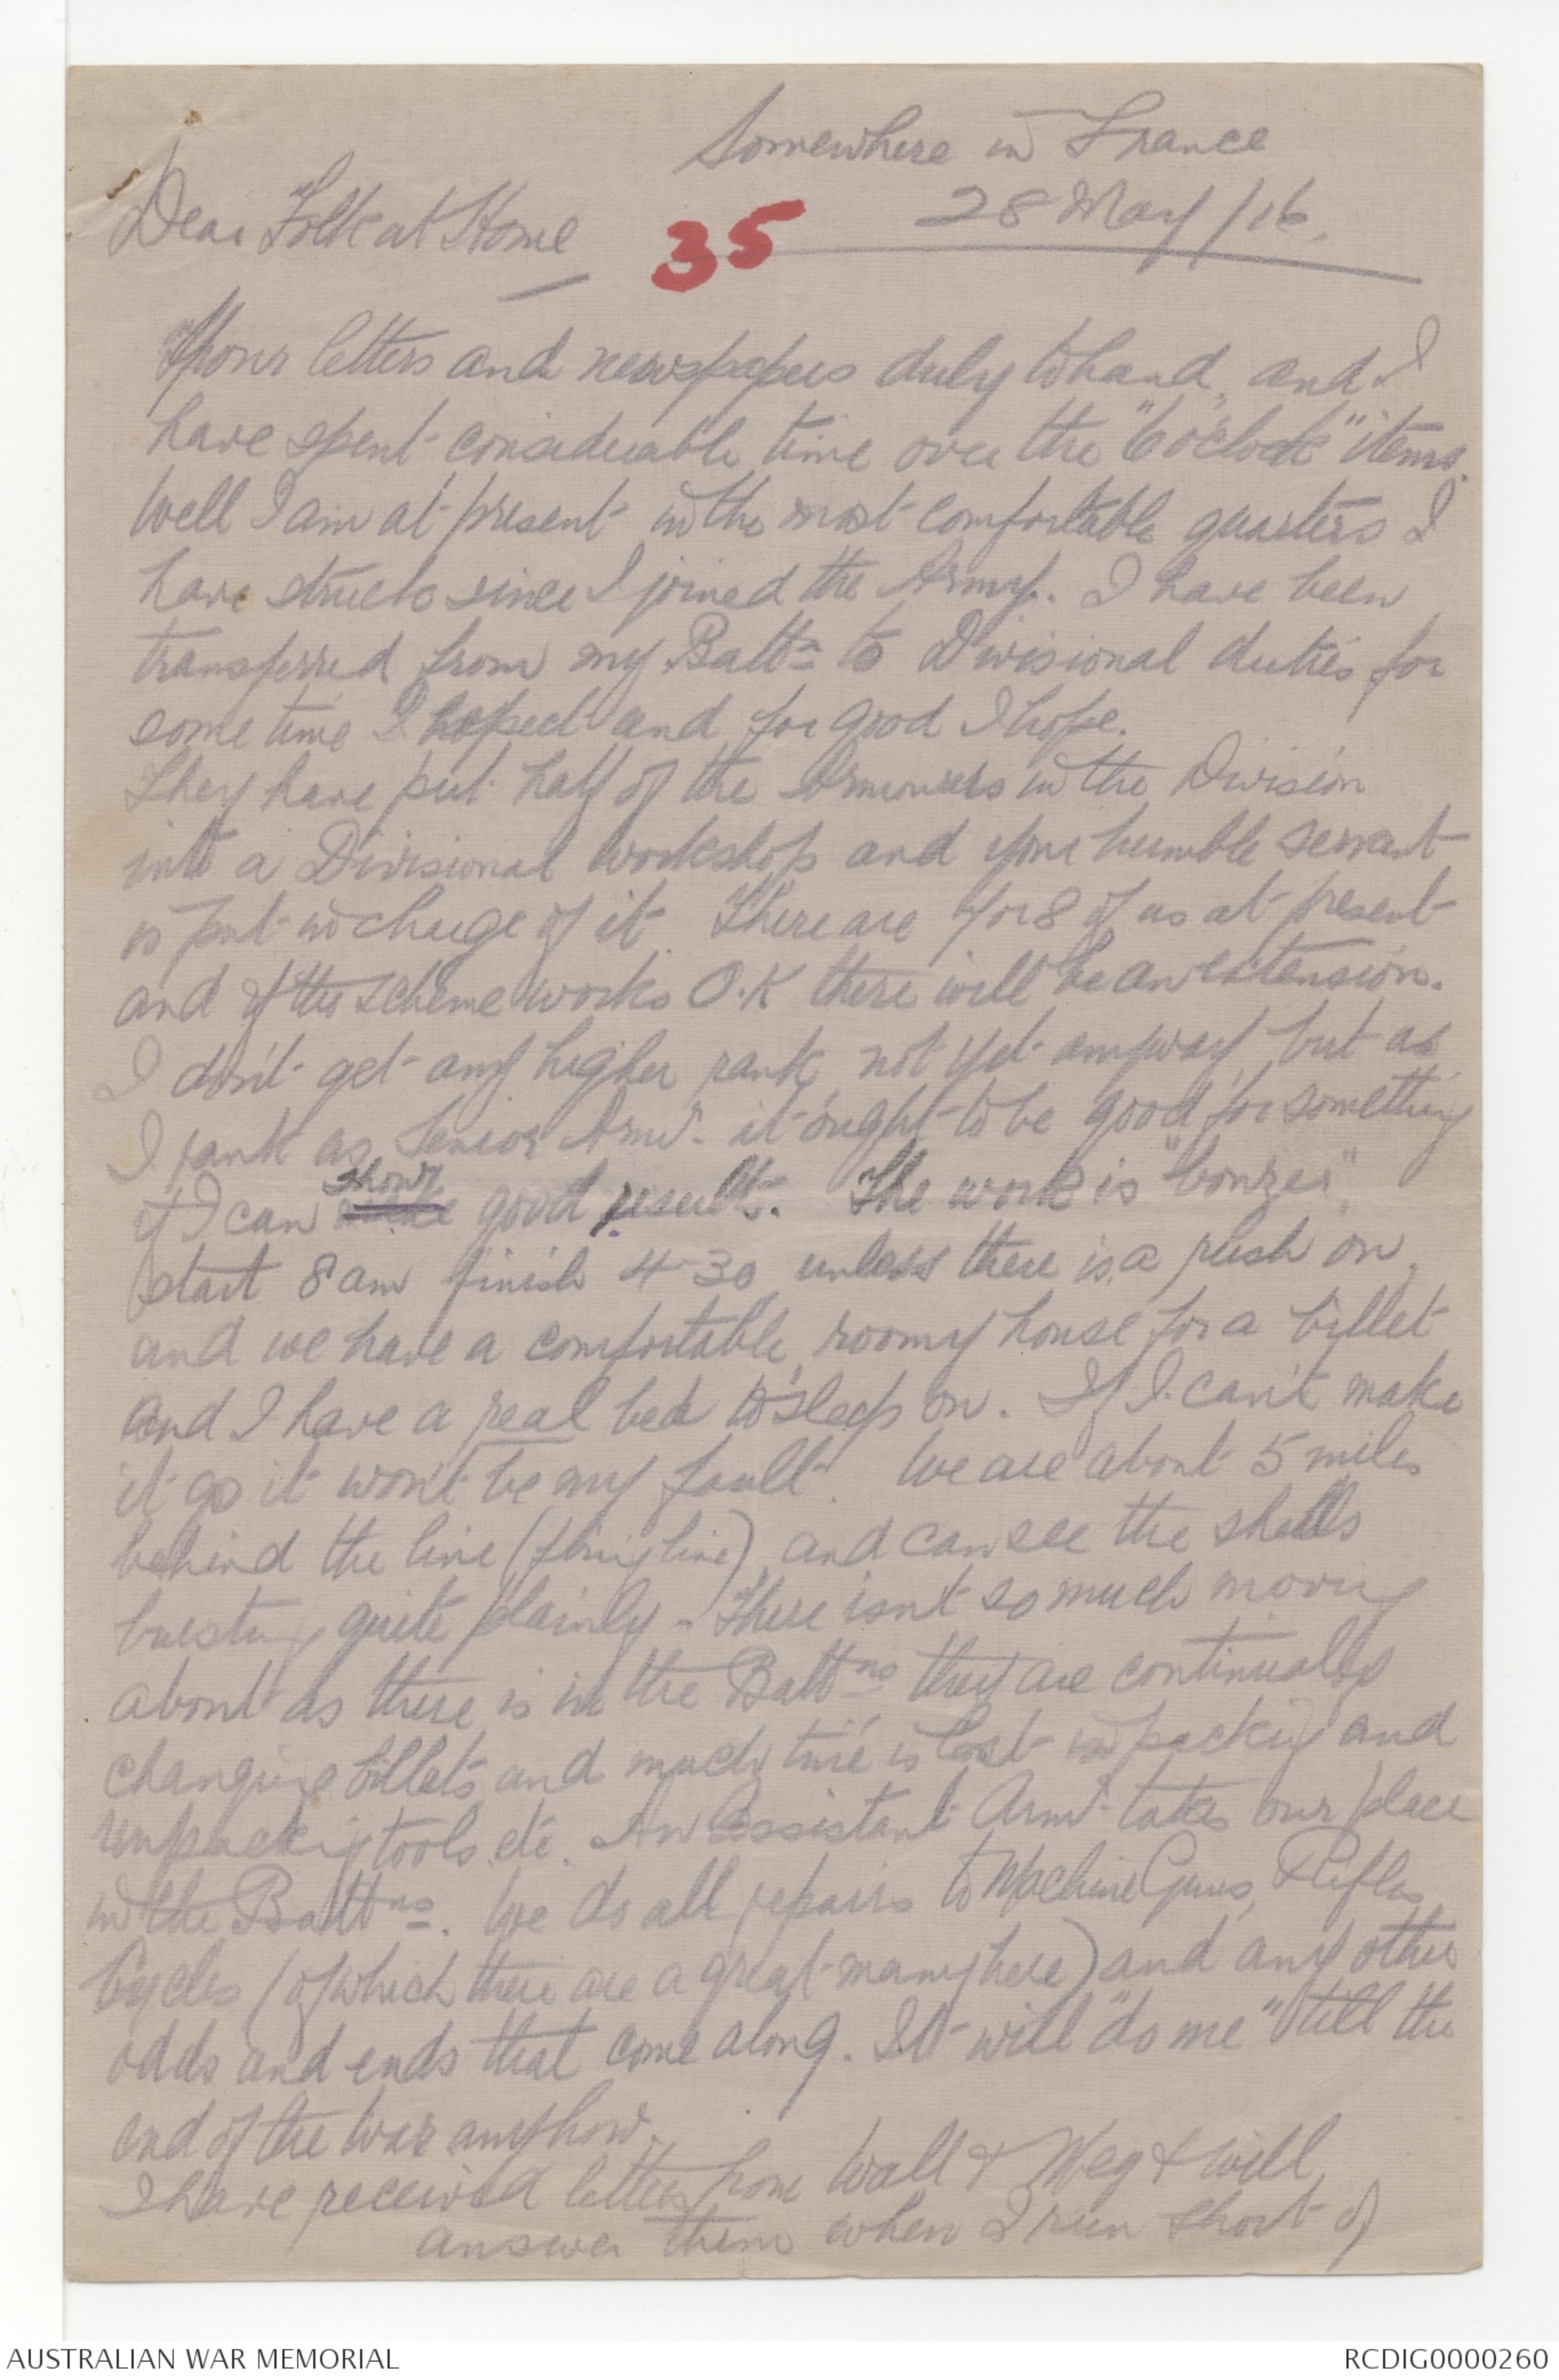 Somewhere in France
28 May /16.
Dear Folk at Home
35
Your letters and newspapers duly to hand, and I
have spent considerable time over the "6 o'clock" items.
Well I am at present in the most comfortable quarters I
have struck since I joined the Army. I have been
transferred from my Battn to Divisional duties for
some time I expect and for good I hope.
They have put half of the Armourers in the Division
into a Divisional workshop and your humble servant
is put in charge of it. There are 7 or 8 of us at present
and if the scheme works O.K there will be an extension.
I don't get any higher rank, not yet anyway, but as
I rank as Senior Armr it ought to be good for something
if I can show good results. The work is "bonzer",
start 8 am finish 4-30 unless there is a push on,
and we have a comfortable roomy house for a billet
and I have a real bed to sleep on. If I can't make
it go it won't be my fault. We are about 5 miles
behind the line (firing line) and can see the shells
bursting quite plainly - There isn't so much moving
about as there is in the Battns they are continually
changing billets and much time is lost in packing and
unpacking tools etc. An Assistant Armr takes our place
in the Battns. We do all repairs to Machine Guns, Rifles,
Cycles (of which there are a great many here) and any other
odds and ends that come along. It will "do me" till the
end of the War anyhow.
I have received letters from Wall & Meg & will
answer them when I run short of
AUSTRALIAN WAR MEMORIAL
RCDIG0000260